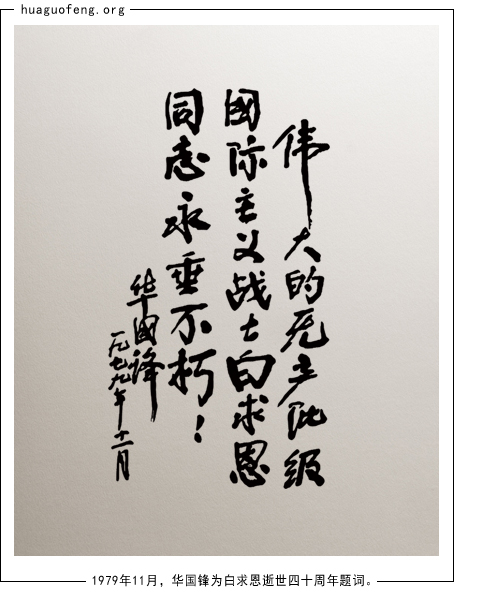 huaguofeng.org
伟大的无产阶级
國际主义战士白求恩
同志永垂不朽！
华國锋
一九七九年十一月
1979年11月，华国锋为白求恩逝世四十周年题词。